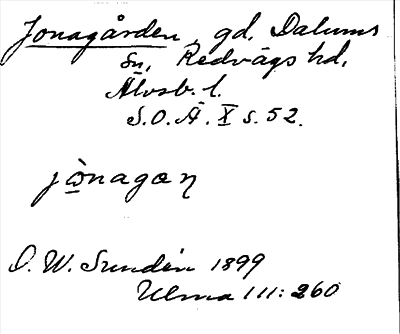 Jonagården, gd. Dalums
sn, Redvägs hd,
Älvsb. l.
S.O.Ä. X s. 52.
jònagaɳ
D. W. Sundén 1899
Ulma 111:260